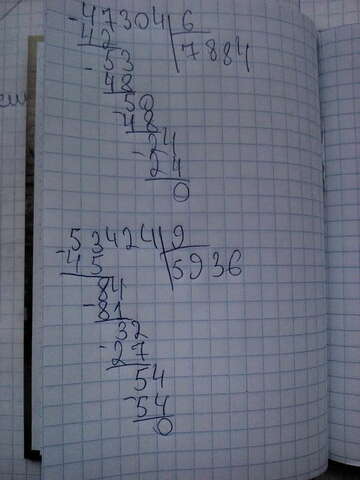 -47304 6
42 7884
-53
48
50
-48
-24
24
0
-53424 9
45 5936
84
-81
32
-27
54
-54
0